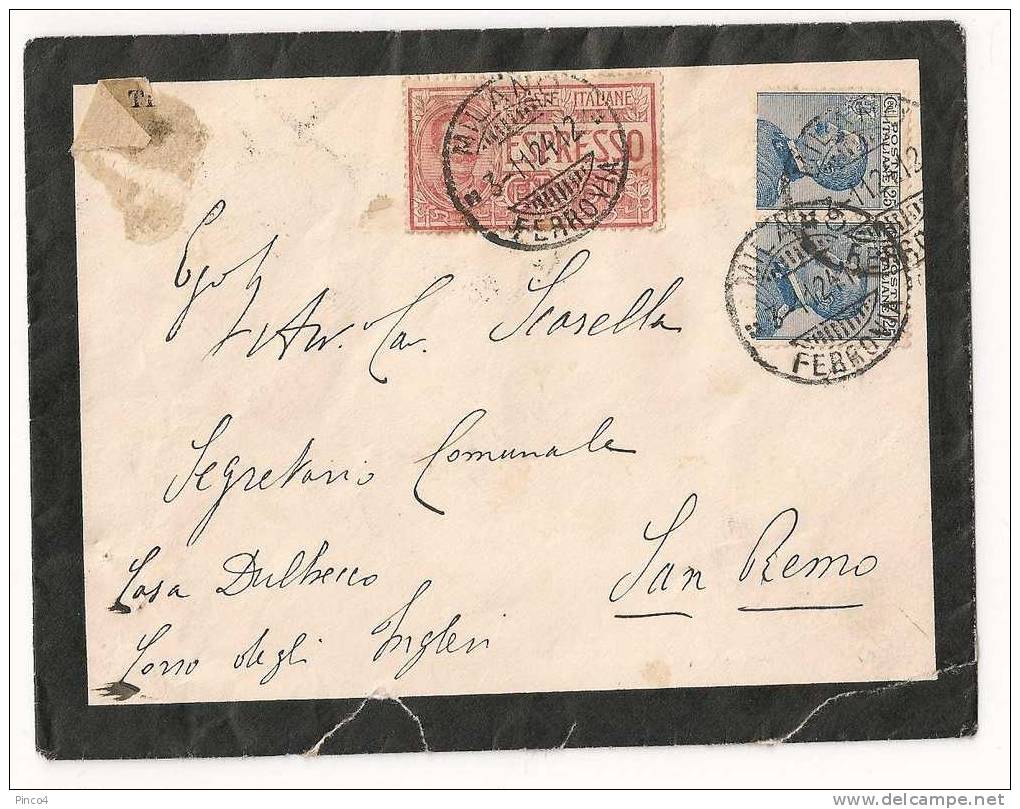 POSTE ITALIANE
ESPRESSO
MILANO
3-11 24.12
FERROVIA
POSTE ITALIANE 25
POSTE ITALIANE 25
MILANO
FERROVIA
Egol.
Av. Cav. Scarella
Segretario Comunale
San Remo
Casa Dulbecco
Corso degli Inglesi
Pinco4
delcampe.net